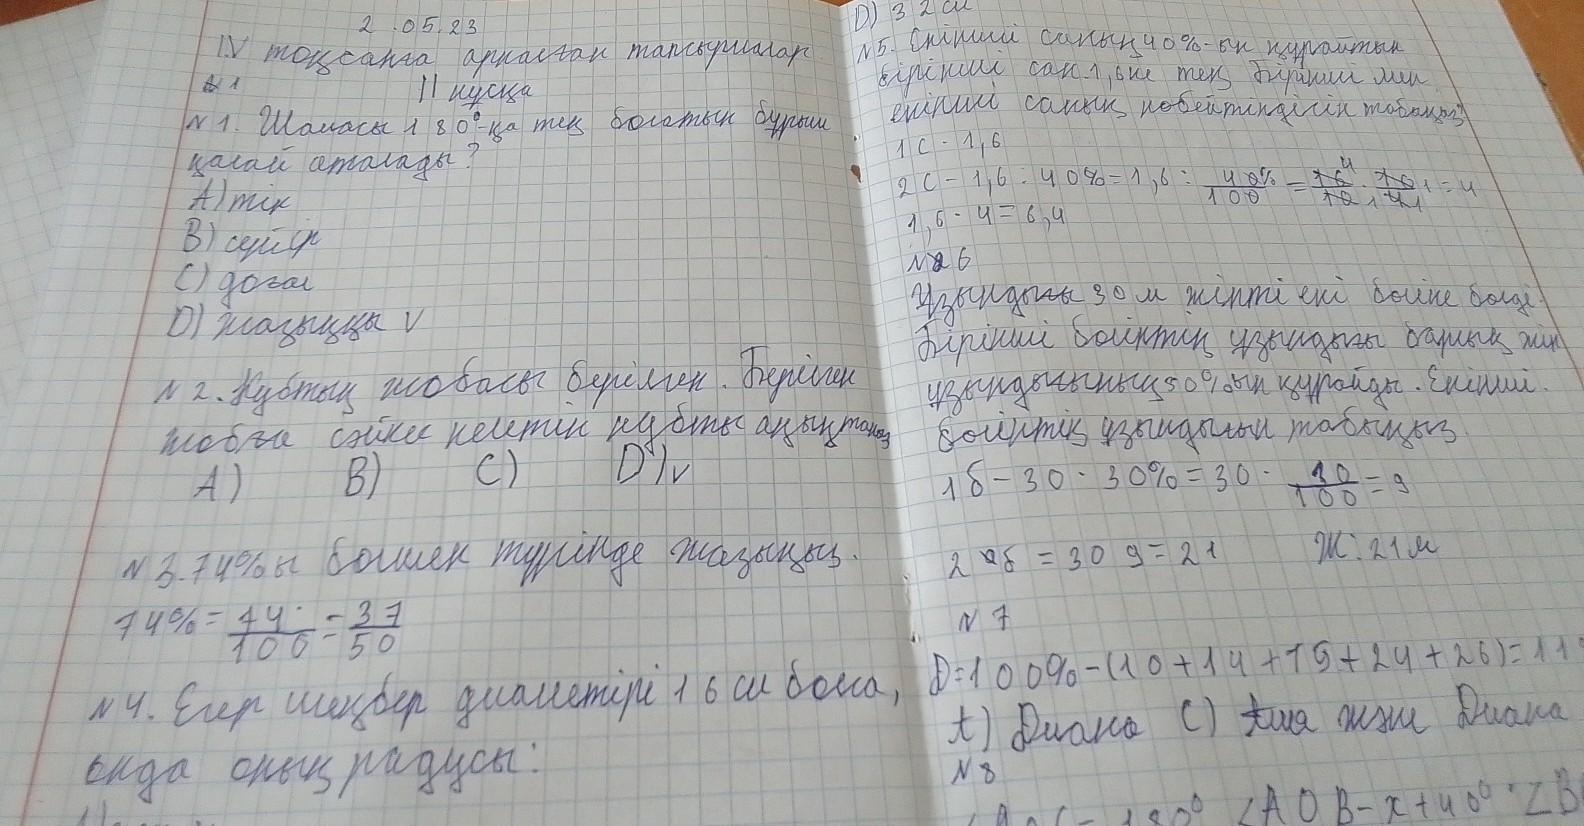 2.05.23
IV тоқсанға арналған тапсырмалар
II нұсқа
N 1. Шамасы 180°-қа тең болатын бұрыш
қалай аталады?
A) тік
B) сүйір
C) доғал
D) жазыңқы v
N 2. Кубтың жобасы берілген. Берілген
жобға сәйкес келетін кубты анықтаңыз
A) B) C) D) v
N 3. 74%ы бөлшек түрінде жазыңыз.
74% = 74/100 = 37/50
N 4. Егер шеңбер диаметірі 16 см болса,
онда оның радусы:
D) 32 см
N 5. Екінші санның 40%-ын құрайтын
бірінші сан 1,6 ке тең. Бірінші мен
екінші санның көбейтіндісін табыңыз
1С - 1,6
2С - 1,6 : 40% = 1,6 : 40%/100 = 16/10 · 10/4 = 4
1,6 · 4 = 6,4
N 6
Ұзындығы 30 м жіпті екі бөлікке бөлді.
Бірінші бөліктің ұзындығы барлық жіп
ұзындығының 30%ын құрайды. Екінші
бөліктің ұзындығын табыңыз.
1б - 30 · 30% = 30 · 30/100 = 9
2 б = 30 9 = 21 Ж: 21 м
N 7
D = 100% - (10 + 14 + 15 + 24 + 26) = 11%
t) Диана C) және Диана
N 8
= 180° ∠AOB - x + 40° ∠B